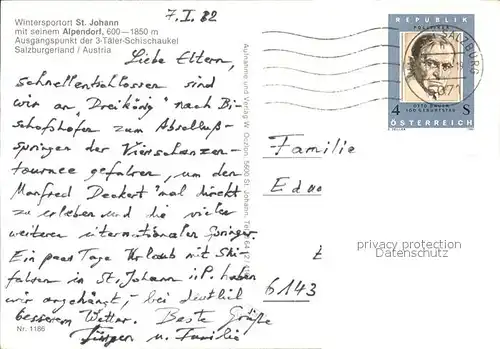 Wintersportort St. Johann
mit seinem Alpendorf, 600—1850 m
Ausgangspunkt der 3-Täler-Schischaukel
Salzburgerland / Austria
7.I.82
Liebe Eltern,
schnellentschlossen sind
wir an "Dreikönig" nach Bi-
schofshofen zum Abschluß-
springen der Vierschanzen-
tournee gefahren, um den
Manfred Deckert 'mal direkt
zu erleben und die vielen
weiteren internationalen Springer.
Ein paar Tage Urlaub mit Ski-
fahren in St. Johann i.P. haben
wir angehängt, bei deutlich
besserem Wetter. Beste Grüße
Jürgen u. Familie
Nr. 1186
Aufnahme und Verlag W. Oczlon, 5600 St. Johann, Tel. 64 12 / 4
REPUBLIK
4 S
ÖSTERREICH
SALZBURG
Familie
Edu
6143
privacy protection
Datenschutz